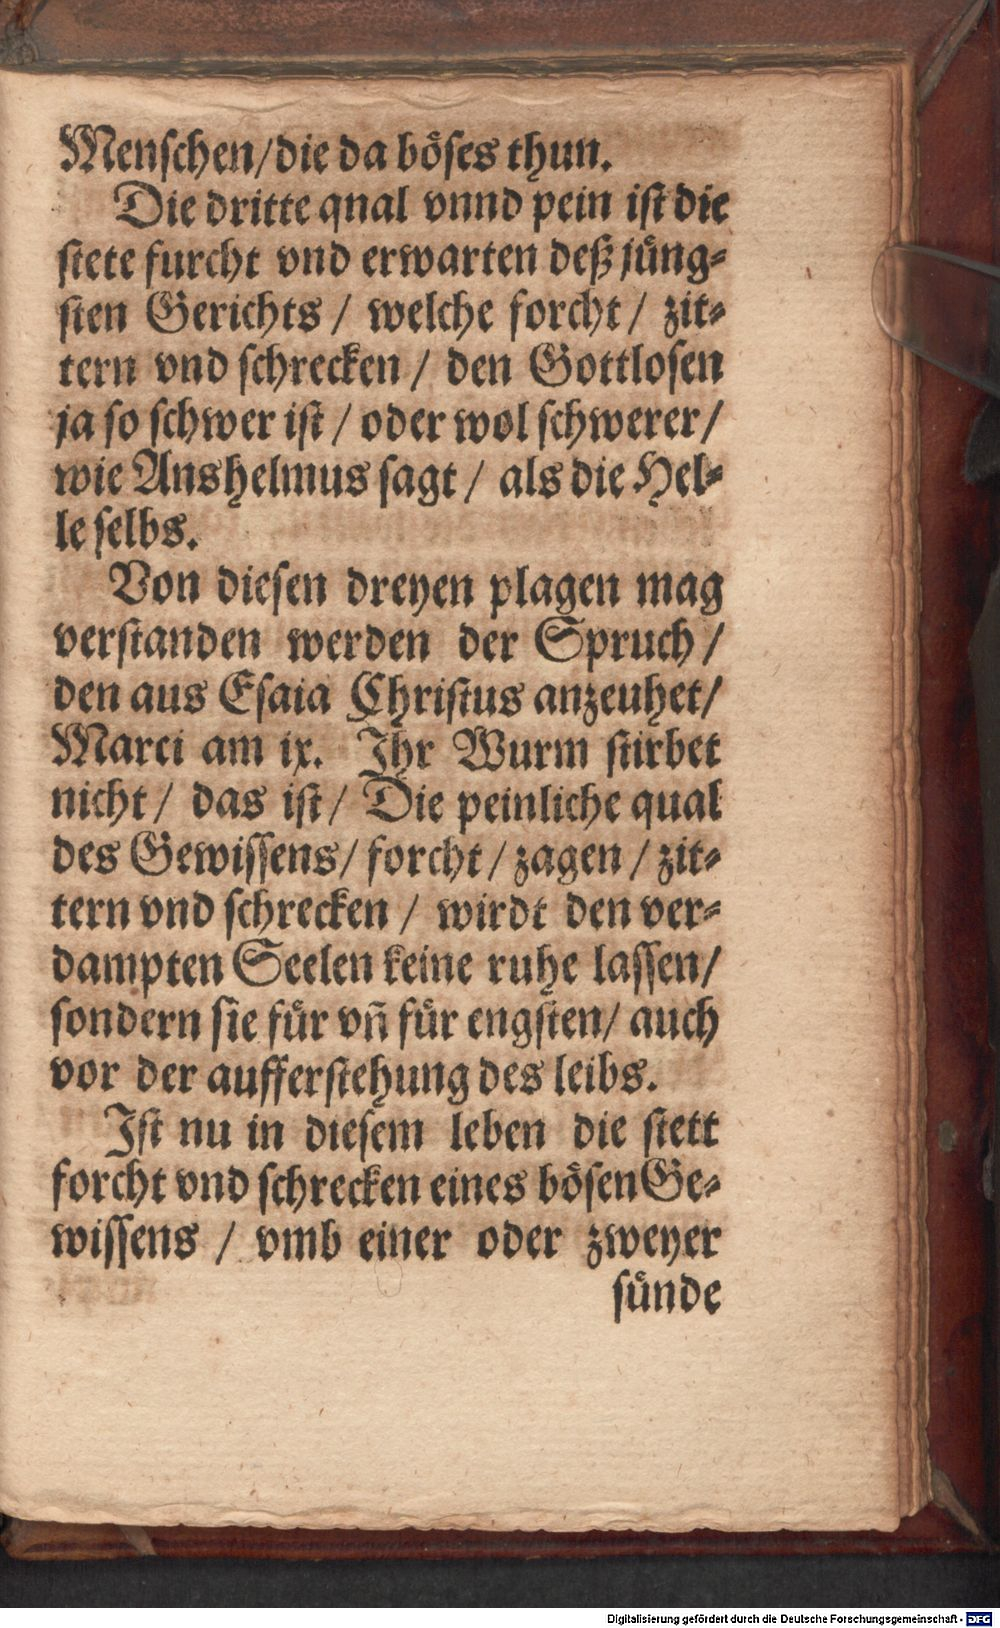 Menschen/die da böses thun.
Die dritte qnal vnnd pein ist die
stete furcht vnd erwarten deß jüng⸗
sten Gerichts / welche forcht / zit⸗
tern vnd schrecken / den Gottlosen
ja so schwer ist / oder wol schwerer /
wie Anshelmus sagt / als die Hel⸗
le selbs.
Von diesen dreyen plagen mag
verstanden werden der Spruch /
den aus Esaia Christus anzeuhet /
Marci am ix. Ihr Wurm stirbet
nicht / das ist / Die peinliche qual
des Gewissens / forcht / zagen / zit⸗
tern vnd schrecken / wirdt den ver⸗
dampten Seelen keine ruhe lassen /
sondern sie für vñ für engsten / auch
vor der aufferstehung des leibs.
Ist nu in diesem leben die stett
forcht vnd schrecken eines bösen Ge⸗
wissens / vmb einer oder zweyer
sünde
Digitalisierung gefördert durch die Deutsche Forschungsgemeinschaft - DFG